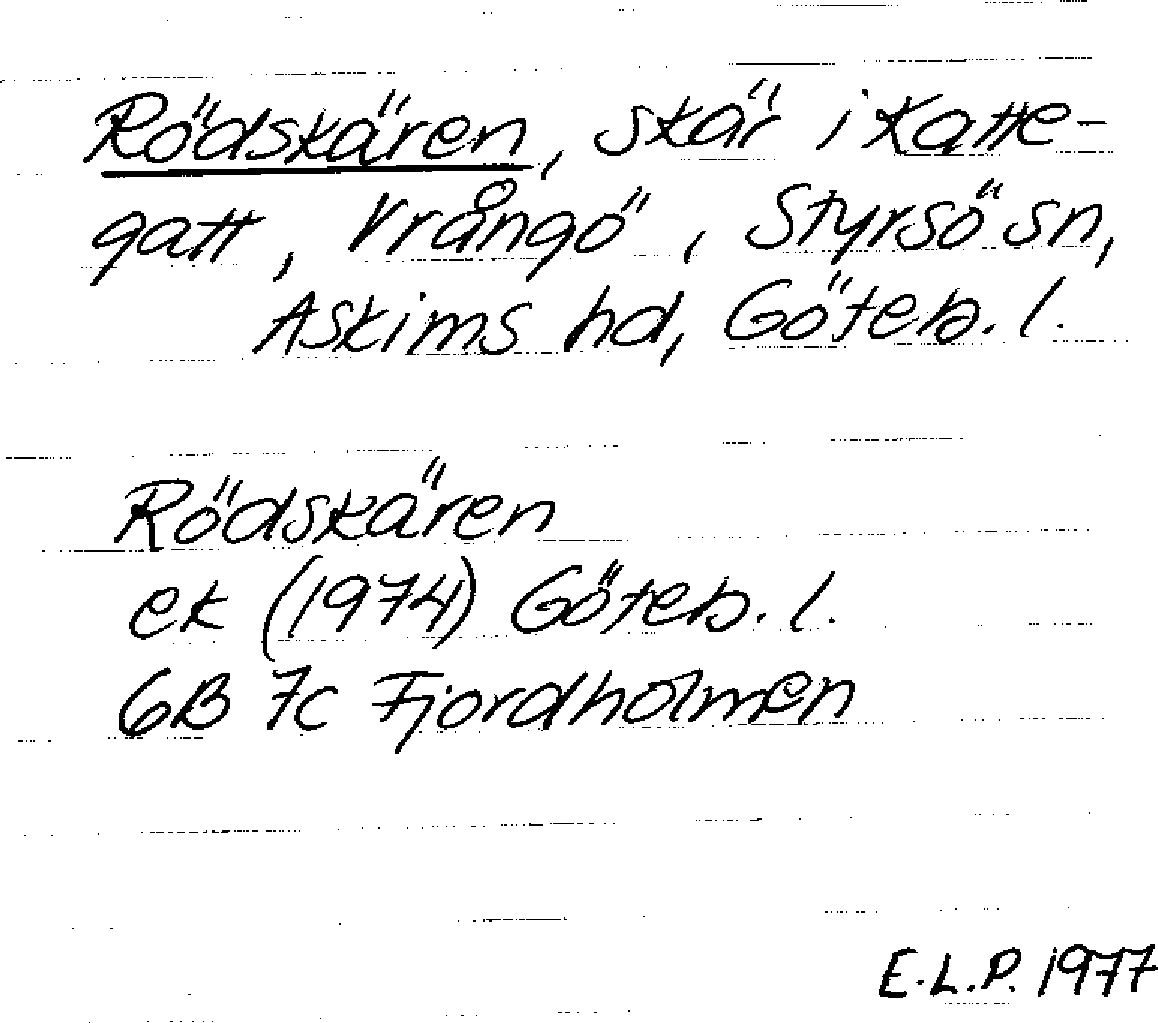 Rödskären, skär i Katte-
gatt, Vrångö, Styrsö sn,
Askims hd, Göteb. l.
Rödskären
ek (1974) Göteb. l.
6B 7c Fjordholmen
E.L.P. 1977